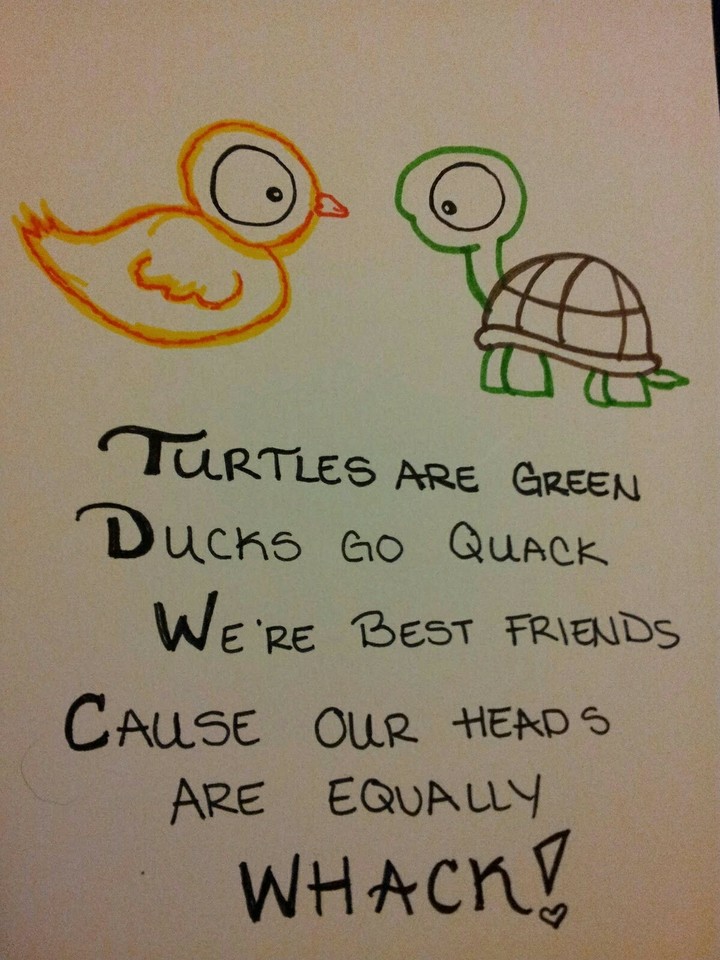 Turtles are Green
Ducks go Quack
We're Best friends
Cause our heads
are equally
WHACK!